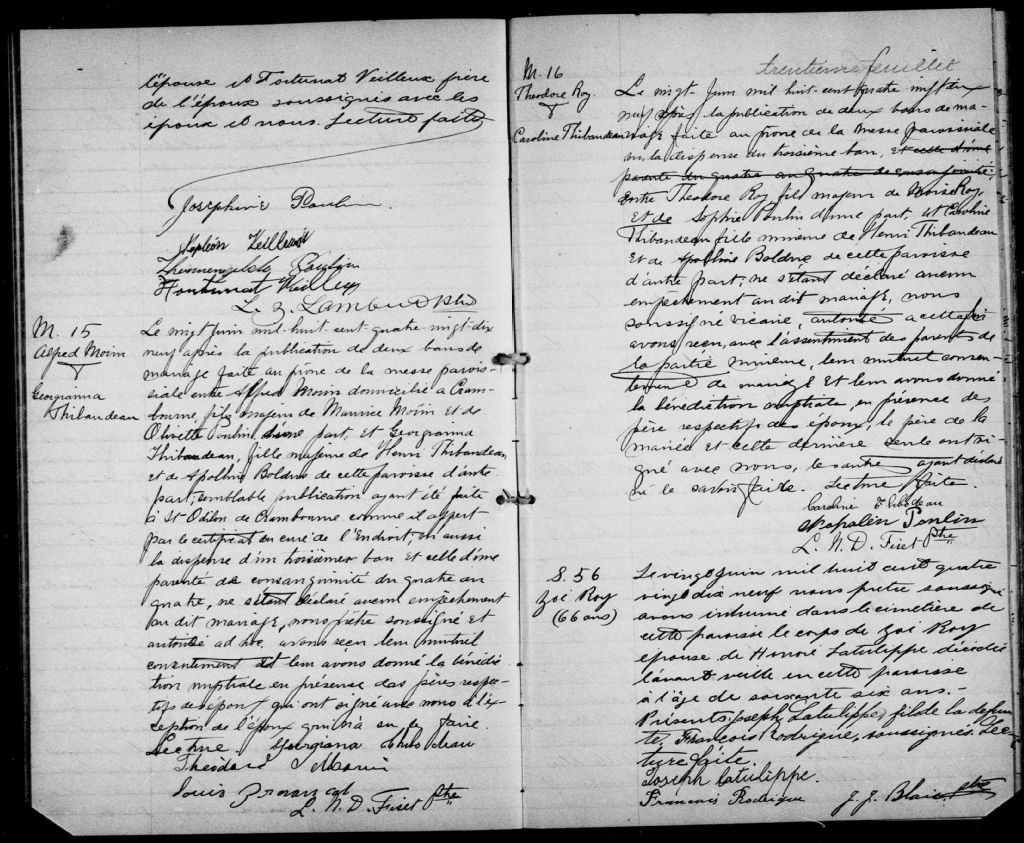 l'épouse et Fortunat Veilleux frère
de l'époux soussignés avec les
époux et nous. Lecture faite
Joséphine Poulin
Napoléon Veilleux
Poulin
Fortunat Veilleux
L. Z. Lambert Ptre
M. 15
Alfred Morin
&
Georgianna
Thibaudeau
Le vingt Juin mil huit cent quatre-vingt-dix
neuf après la publication de deux bans de
mariage faite au prône de la messe parois-
siale entre Alfred Morin domicilié à Cram-
bourne, fils majeur de Maurice Morin et de
Olivette Poulin, d'une part, et Georgianna
Thibaudeau, fille majeure de Henri Thibaudeau
et de Apolline Bolduc de cette paroisse d'autre
part, semblable publication ayant été faite
à St Odilon de Crambourne comme il appert
par le certificat du curé de l'Endroit, vu aussi
la dispense d'un troisième ban et celle d'une
parenté de consanguinité du quatre au
quatre, ne s'étant déclaré aucun empêchement
au dit mariage, nous prêtre soussigné et
autorisé ad hoc, avons reçu leur mutuel
consentement et leur avons donné la bénédic
tion nuptiale en présence des pères respec-
tifs des époux qui ont signé avec nous à l'ex-
ception de l'époux qui n'a su le faire.
Lecture. Georgiana Thibodeau
Théodore Morin
Louis
L. N. D. Fiset Ptre
trentième feuillet
M. 16
Theodore Roy
&
Caroline Thibaudeau
Le vingt Juin mil huit-cent quatre vingt dix
neuf après la publication de deux bans de ma-
riage faite au prône de la messe paroissiale
vu la dispense du troisième ban, et celle d'une
parenté du quatre au quatre de consanguinité,
Entre Théodore Roy fils majeur de Moïse Roy
et de Sophie Poulin d'une part, et Caroline
Thibaudeau fille mineure de Henri Thibaudeau
et de Apolline Bolduc de cette paroisse
d'autre part, ne s'étant déclaré aucun
empêchement au dit mariage, nous
soussigné vicaire, autorisé a cette fin
avons reçu, avec l'assentiment des parents de
la partie mineure, leur mutuel consen-
tement de mariage et leur avons donné
la bénédiction nuptiale, en présence des
père respectifs des époux, le père de la
mariée et cette dernière seule ont si-
gné avec nous, les autres ayant déclaré
ne le savoir faire. Lecture faite.
Caroline Thibodeau
Napoléon Poulin
L. N. D. Fiset Ptre
S. 56
Zoé Roy
(66 ans)
Le vingt Juin mil huit cent quatre
vingt dix neuf nous prêtre soussigné
avons inhumé dans le cimetière de
cette paroisse le corps de Zoé Roy
épouse de Honoré Latulippe décédée
l'avant veille en cette paroisse
à l'âge de soixante six ans.-
Présents Joseph Latulippe, fils de la defun
te, François Rodrigue, soussignés. Lec
ture faite.
Joseph Latulippe.
François Rodrigue
J. J. Blais ptre